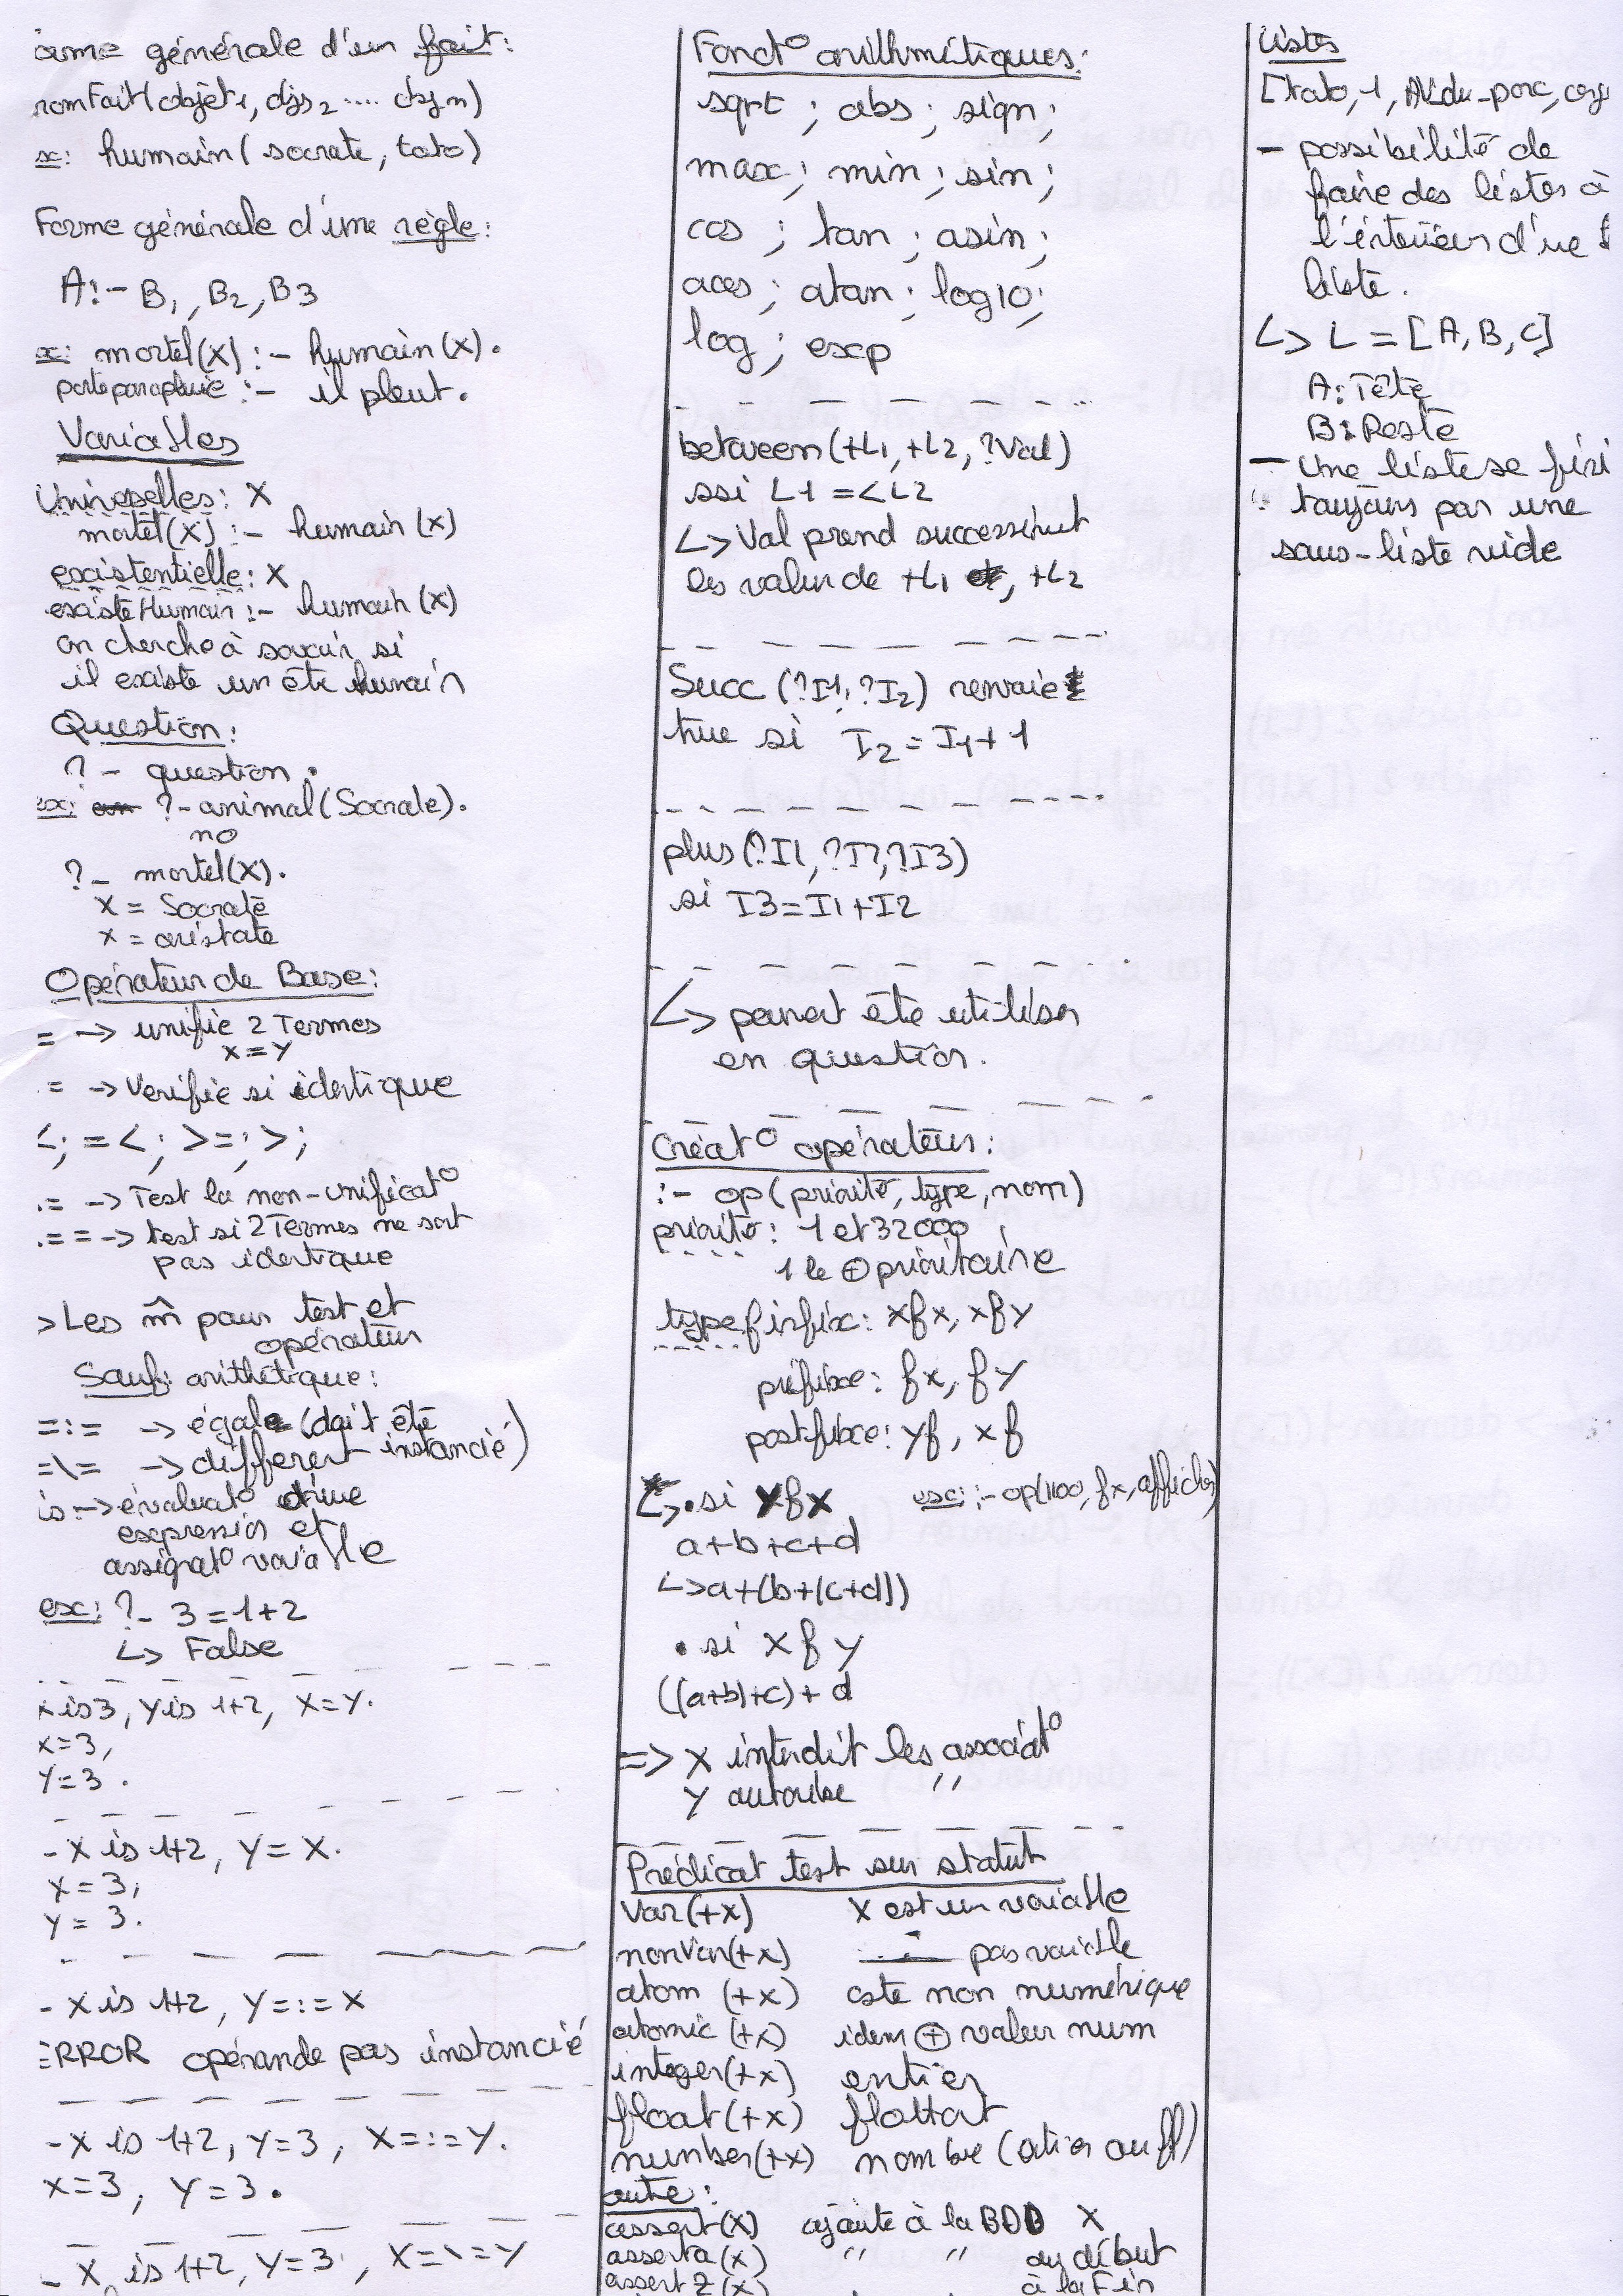 orme générale d'un fait:
nomFait(objet1, objs2 .... objn)
ex: humain(socrate, toto)
Forme générale d'une règle:
A:- B1, B2, B3
ex: mortel(X) :- humain(X).
porteparapluie :- il pleut.
Variables
Universelles: X
mortel(X) :- humain(X)
existentielle: X
existeHumain :- humain(X)
on cherche à savoir si
il existe un être humain
Question:
?- question.
ex: ?- animal(Socrate).
no
?- mortel(X).
X = Socrate
X = aristote
Opérateur de Base:
= -> unifie 2 Termes
X=Y
= -> Verifie si identique
<; =<; >=; >;
.= -> Test la non-unificat°
.== -> test si 2 Termes ne sont
pas identique
>Les m̂ pour test et
opérateur
Sauf: arithétique:
=:= -> égale (doit être
=\= -> différent instancié)
is -> évaluat° d'une
expression et
assignat° variable
ex: ?- 3 = 1+2
↳ False
X is 3, Y is 1+2, X=Y.
X=3,
Y=3.
- X is 1+2, Y=X.
X=3;
Y=3.
- X is 1+2, Y=:=X
ERROR opérande pas instancié
- X is 1+2, Y=3, X=:=Y.
X=3, Y=3.
- X is 1+2, Y=3, X=\=Y
Fonct° arithmétiques:
sqrt ; abs ; sign ;
max ; min ; sin ;
cos ; tan ; asin ;
acos ; atan ; log10 ;
log ; exp
between(+L1, +L2, ?Val)
ssi L1 =< L2
↳ Val prend successivmt
les valur de +L1, +L2
Succ(?I1, ?I2) renvoie
true si I2 = I1+1
plus(?I1, ?I2, ?I3)
si I3=I1+I2
↳ peuvent être utiliser
en question.
Créat° opérateurs:
:- op(priorité, type, nom)
priorité: 1 et 32000
1 le ⊕ prioritaire
type infix: xfx, xfy
préfixe: fx, fy
postfixe: yf, xf
↳ • si yfx
ex: :-op(1100, fx, afficher)
a+b+c+d
↳a+(b+(c+d))
• si x f y
((a+b)+c)+d
=> X interdit les associat°
Y autorise "
Prédicat test sur statut
Var(+X) X est un variable
nonVar(+X) pas variable
atom (+X) cste non numérique
atomic (+X) idem ⊕ valeur num
integer(+X) entier
float(+X) flottant
number(+X) nombre (entier ou fl)
autre:
assert(X) ajoute à la BDD X
asserta(X) " " au début
assertZ(X) à la Fin
Listes
[toto, 1, AL du_porc,
- possibilité de
faire des listes à
l'intérieur d'une
liste.
↳ L = [A, B, C]
A: Tête
B: Reste
- Une liste se fini
toujours par une
sous-liste vide